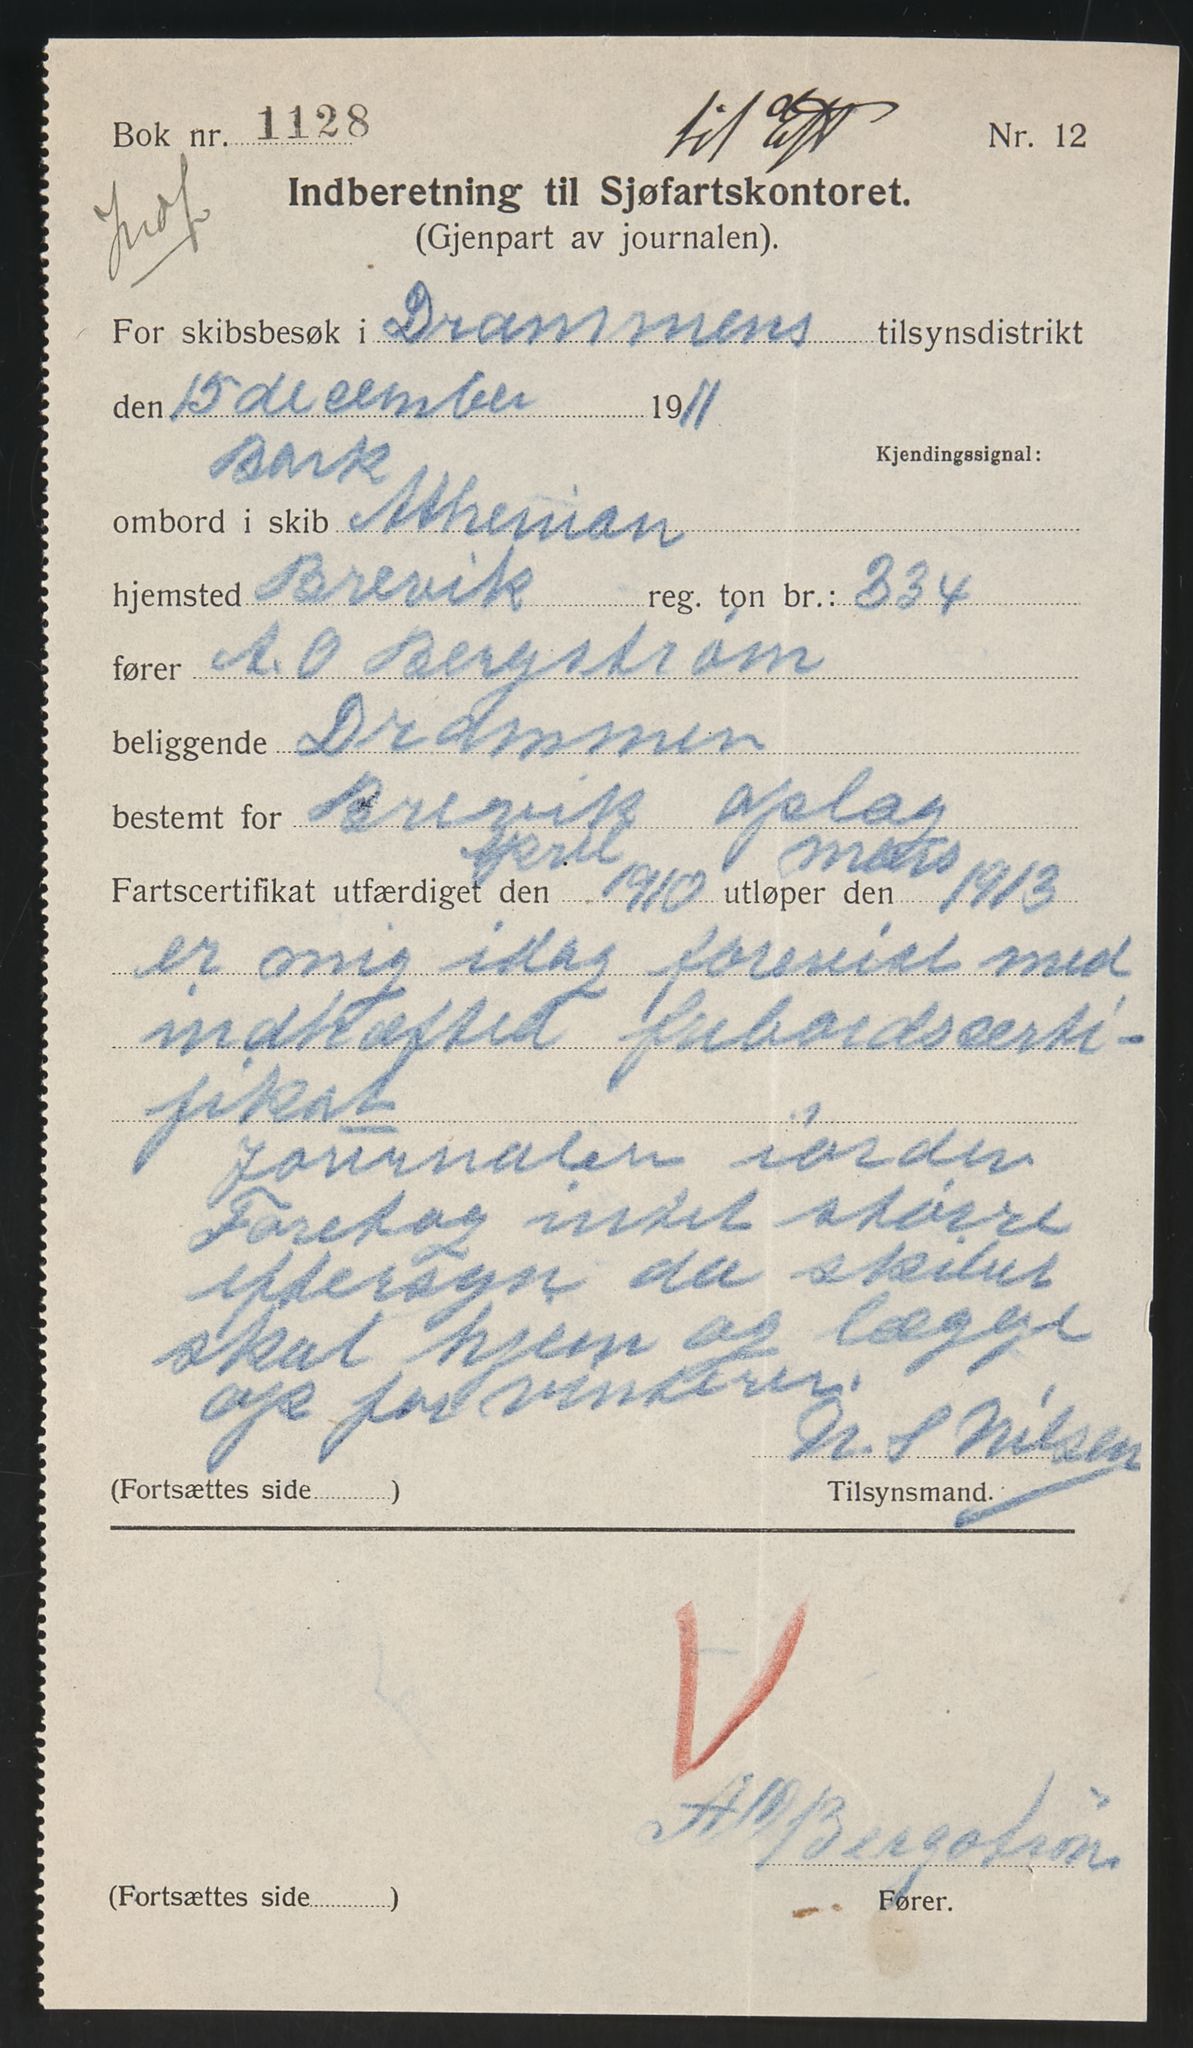 Bok nr. 1128 til Nr. 12
Indberetning til Sjøfartskontoret.
(Gjenpart av journalen).
For skibsbesøk i Drammens tilsynsdistrikt
den 15 december 1911
Kjendingssignal:
Bark
ombord i skib Athenian
hjemsted Brevik reg. ton br.: 334
fører A. O Bergström
beliggende Drammen
bestemt for Brevik oplag
Fartscertifikat utfærdiget den April 1910 utløper den mars 1913
er mig idag forevist med
indhæfted fribordscerti-
fikat
Journalen iorden
Foretog intet større
eftersyn da skibet
skal hjem og lægge
op for vinteren.
N. S Nilsen
(Fortsættes side ) Tilsynsmand.
V
A O Bergström
(Fortsættes side ) Fører.